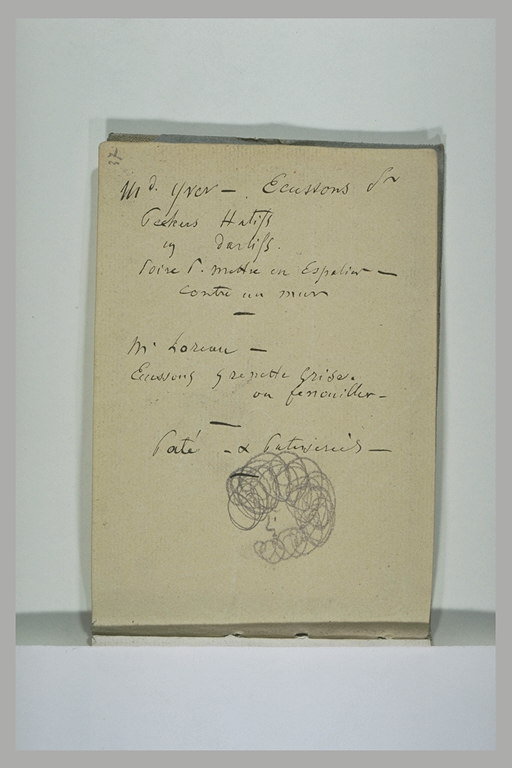 37
Md Yver - Ecussons Sr
Peekers Hatifs
ey Darlifs.
Poire P. mettre en Espalier -
contre un mur
Mr Loreau -
Ecussons grenette Grise.
ou fenouiller -
Paté - & Patisseries -